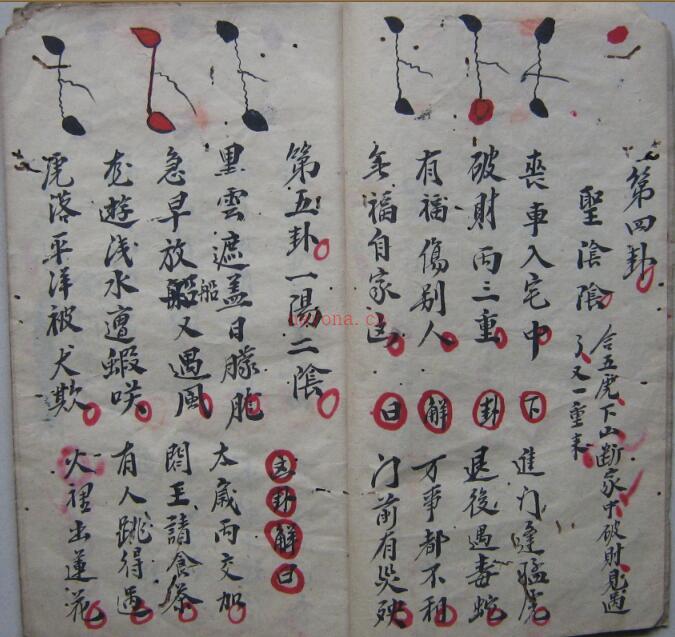 第四卦
聖陰陰
合五虎下山断家中破財見遇
了又一重来
喪車入宅中
破財两三重
有福傷别人
無福自家
下卦解曰
進门逢猛虎
退後遇毒蛇
万事都不利
门前有災殃
第五卦一陽二陰
黒雲遮盖日朦胧
急早放船船又遇風
龙遊浅水遭蝦咲
虎落平洋被犬欺
五卦解曰
太歳两交加
閻王請食茶
有人跳得過
火裡出莲花